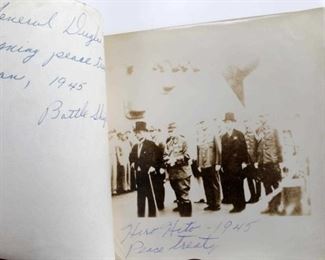 General
ning peace
an, 1945
Battle
Hiro Hito - 1945
Peace treaty